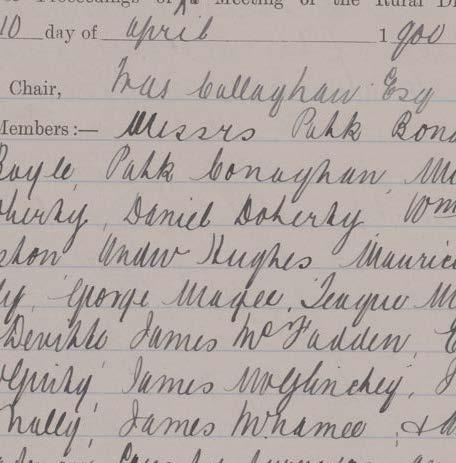 Proceedings of a Meeting of the Rural Di
10 day of april 1900
Chair, Wm Callaghan Esq
Members:— Messrs Patk Bon
Boyle, Patk Conaghan, M
oherty, Daniel Doherty Wm
ston Andw Hughes Mauric
George Magee, Teague M
Devitte James McFadden,
James McGlinchey,
nally, James McNamee, &